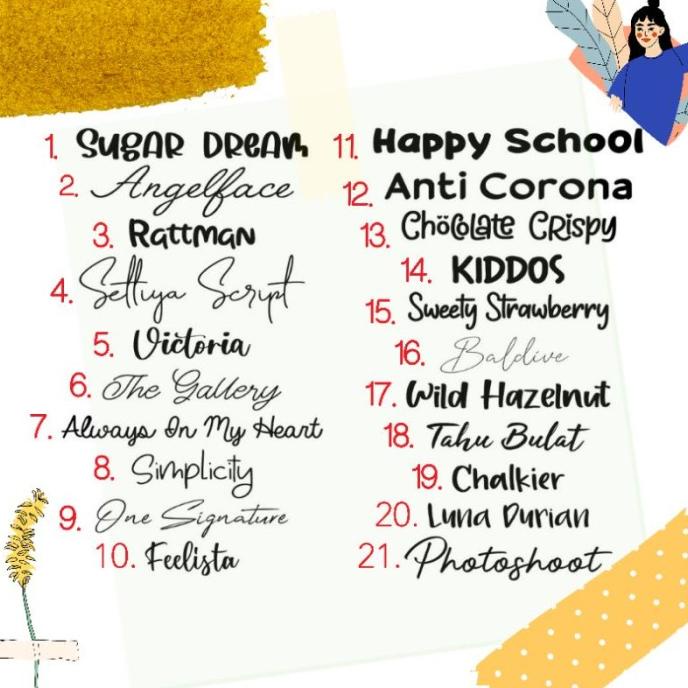 1. SUGAR DREAM
2. Angelface
3. Rattman
4. Settiya Script
5. Victoria
6. The Gallery
7. Always On My Heart
8. Simplicity
9. One Signature
10. Feelista
11. Happy School
12. Anti Corona
13. Chocolate Crispy
14. KIDDOS
15. Sweety Strawberry
16. Baldive
17. Wild Hazelnut
18. Tahu Bulat
19. Chalkier
20. Luna Durian
21. Photoshoot